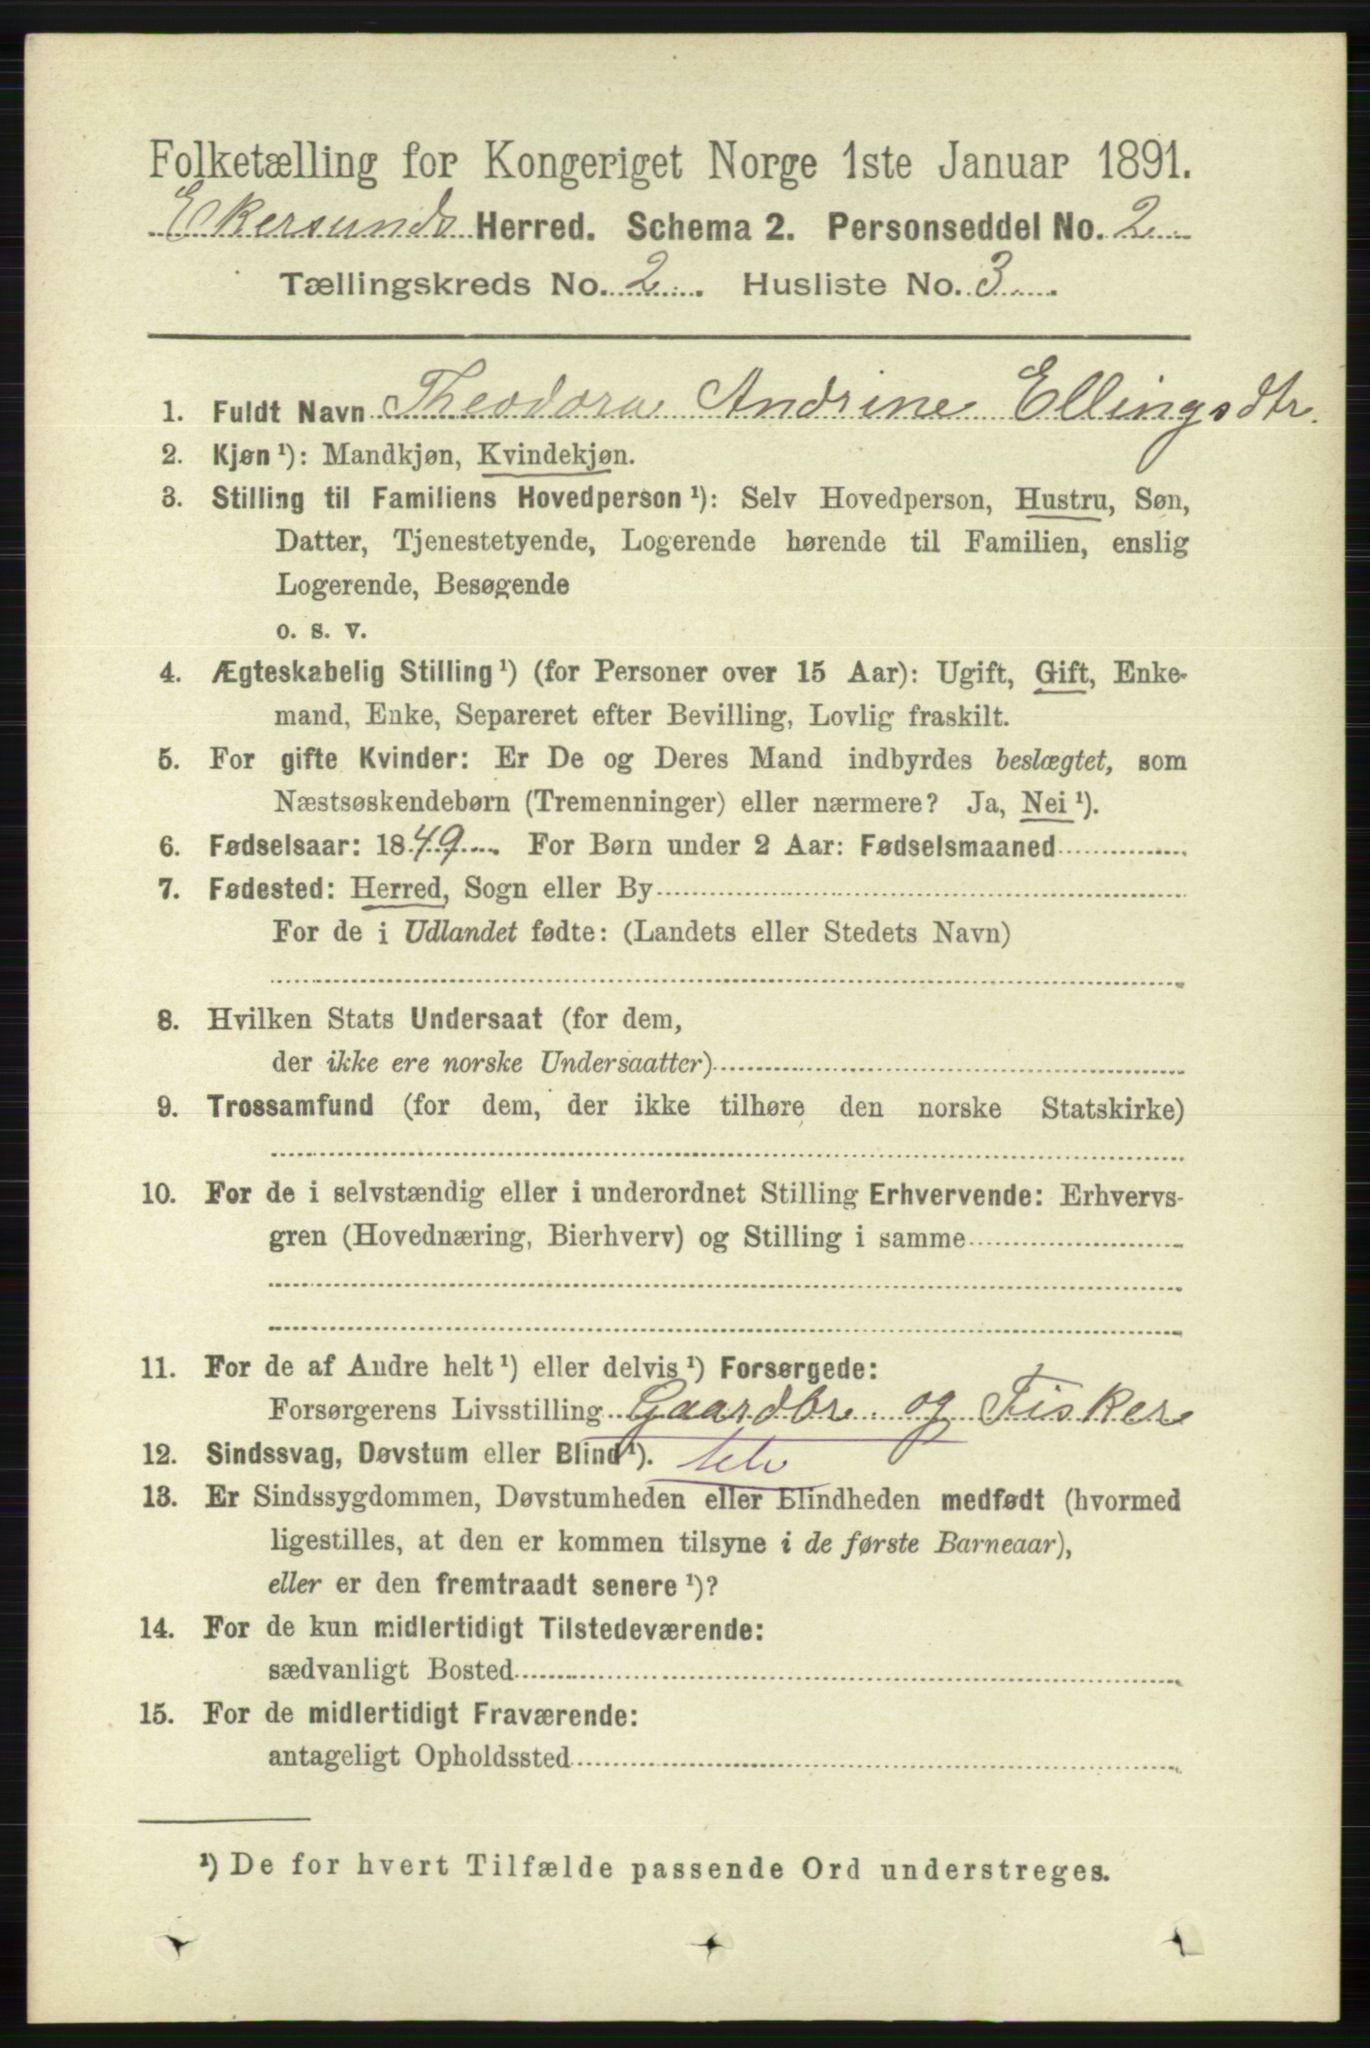 Folketælling for Kongeriget Norge 1ste Januar 1891.
Ekersunds Herred. Schema 2. Personseddel No. 2
Tællingskreds No. 2 Husliste No. 3
1. Fuldt Navn Theodora Andrine Ellingsdtr.
2. Kjøn ¹): Mandkjøn, Kvindekjøn.
3. Stilling til Familiens Hovedperson ¹): Selv Hovedperson, Hustru, Søn,
Datter, Tjenestetyende, Logerende hørende til Familien, enslig
Logerende, Besøgende
o. s. v.
4. Ægteskabelig Stilling ¹) (for Personer over 15 Aar): Ugift, Gift, Enke-
mand, Enke, Separeret efter Bevilling, Lovlig fraskilt.
5. For gifte Kvinder: Er De og Deres Mand indbyrdes beslægtet, som
Næstsøskendebørn (Tremenninger) eller nærmere? Ja, Nei ¹).
6. Fødselsaar: 1849. For Børn under 2 Aar: Fødselsmaaned
7. Fødested: Herred, Sogn eller By
For de i Udlandet fødte: (Landets eller Stedets Navn)
8. Hvilken Stats Undersaat (for dem,
der ikke ere norske Undersaatter)
9. Trossamfund (for dem, der ikke tilhøre den norske Statskirke)
10. For de i selvstændig eller i underordnet Stilling Erhvervende: Erhvervs-
gren (Hovednæring, Bierhverv) og Stilling i samme
11. For de af Andre helt ¹) eller delvis ¹) Forsørgede:
Forsørgerens Livsstilling Gaardbr. og Fisker
12. Sindssvag, Døvstum eller Blind ¹).
13. Er Sindssygdommen, Døvstumheden eller Blindheden medfødt (hvormed
ligestilles, at den er kommen tilsyne i de første Barneaar),
eller er den fremtraadt senere ¹)?
14. For de kun midlertidigt Tilstedeværende:
sædvanligt Bosted
15. For de midlertidigt Fraværende:
antageligt Opholdssted
¹) De for hvert Tilfælde passende Ord understreges.